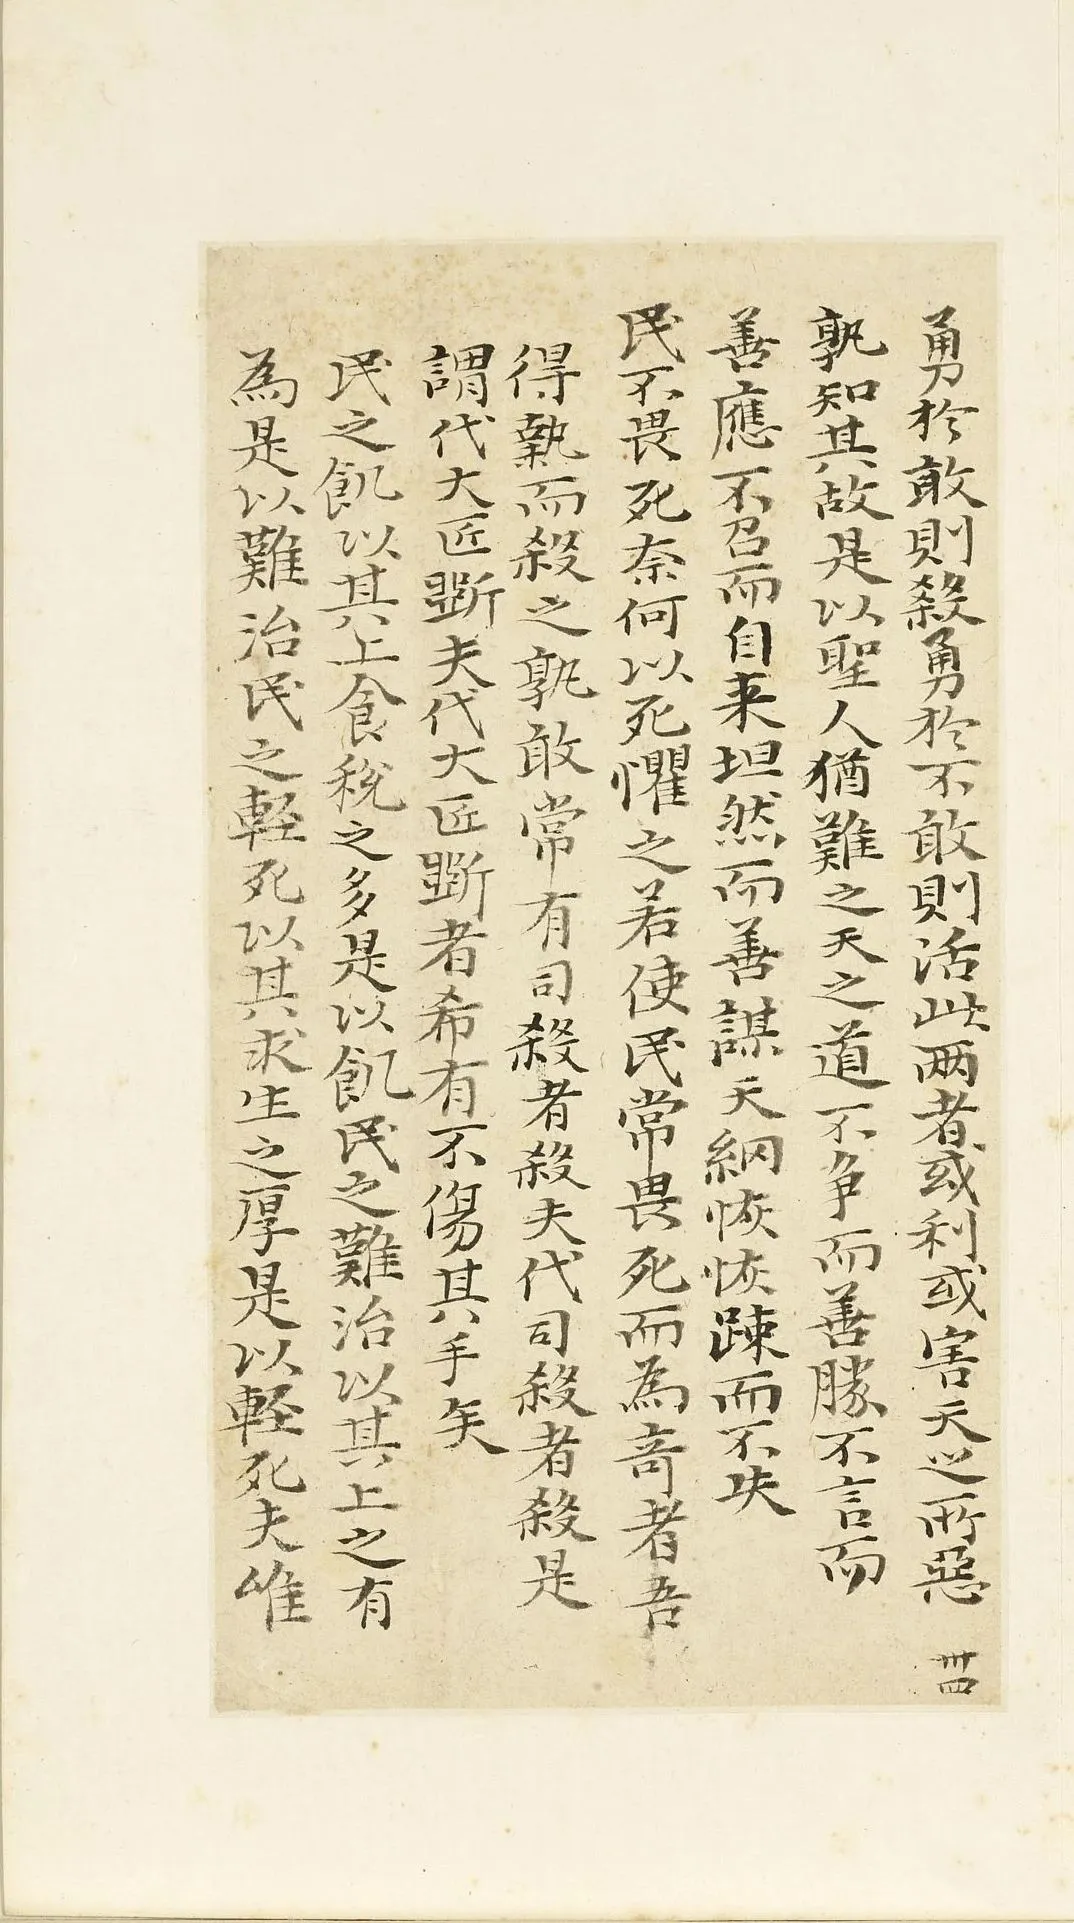 勇於敢則殺勇於不敢則活此两者或利或害天之所惡
卅四
孰知其故是以聖人猶難之天之道不争而善勝不言而
善應不召而自来坦然而善謀天網恢恢踈而不失
民不畏死奈何以死懼之若使民常畏死而為奇者吾
得執而殺之孰敢常有司殺者殺夫代司殺者殺是
謂代大匠斵夫代大匠斵者希有不傷其手矣
民之飢以其上食稅之多是以飢民之難治以其上之有
為是以難治民之輕死以其求生之厚是以輕死夫唯